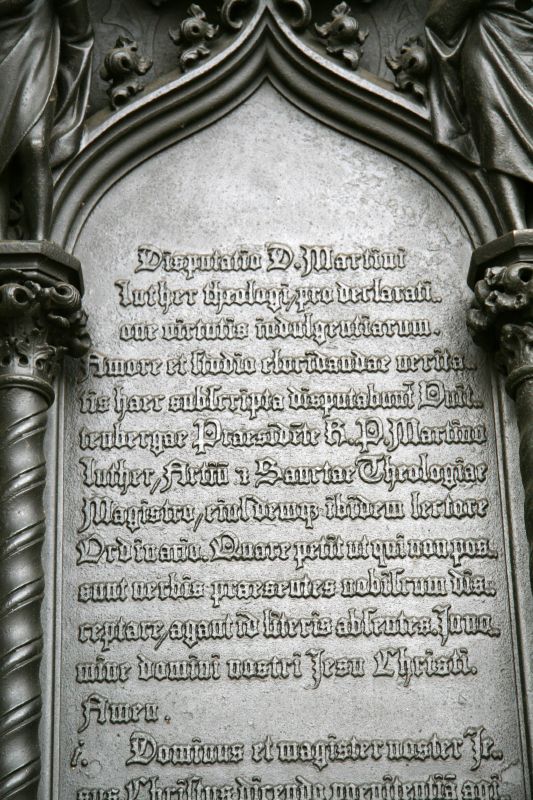 Disputatio D. Martini
Luther theologi, pro declarati⸗
one virtutis indulgentiarum.
Amore et studio elucidandae verita⸗
tis haec subscripta disputabunt̄ Vuit⸗
tenbergae Praesidēte R. P. Martino
Luther, Artiū & Sanctae Theologiae
Magistro, eiusdemq; ibidem lectore
Ordinario. Quare petit ut qui non pos⸗
sunt verbis praesentes nobiscum dis⸗
ceptare, agant id literis absentes. In no⸗
mine domini nostri Jesu Christi.
Amen.
1. Dominus et magister noster Je⸗
sus Christus dicendo poenitentiā agi